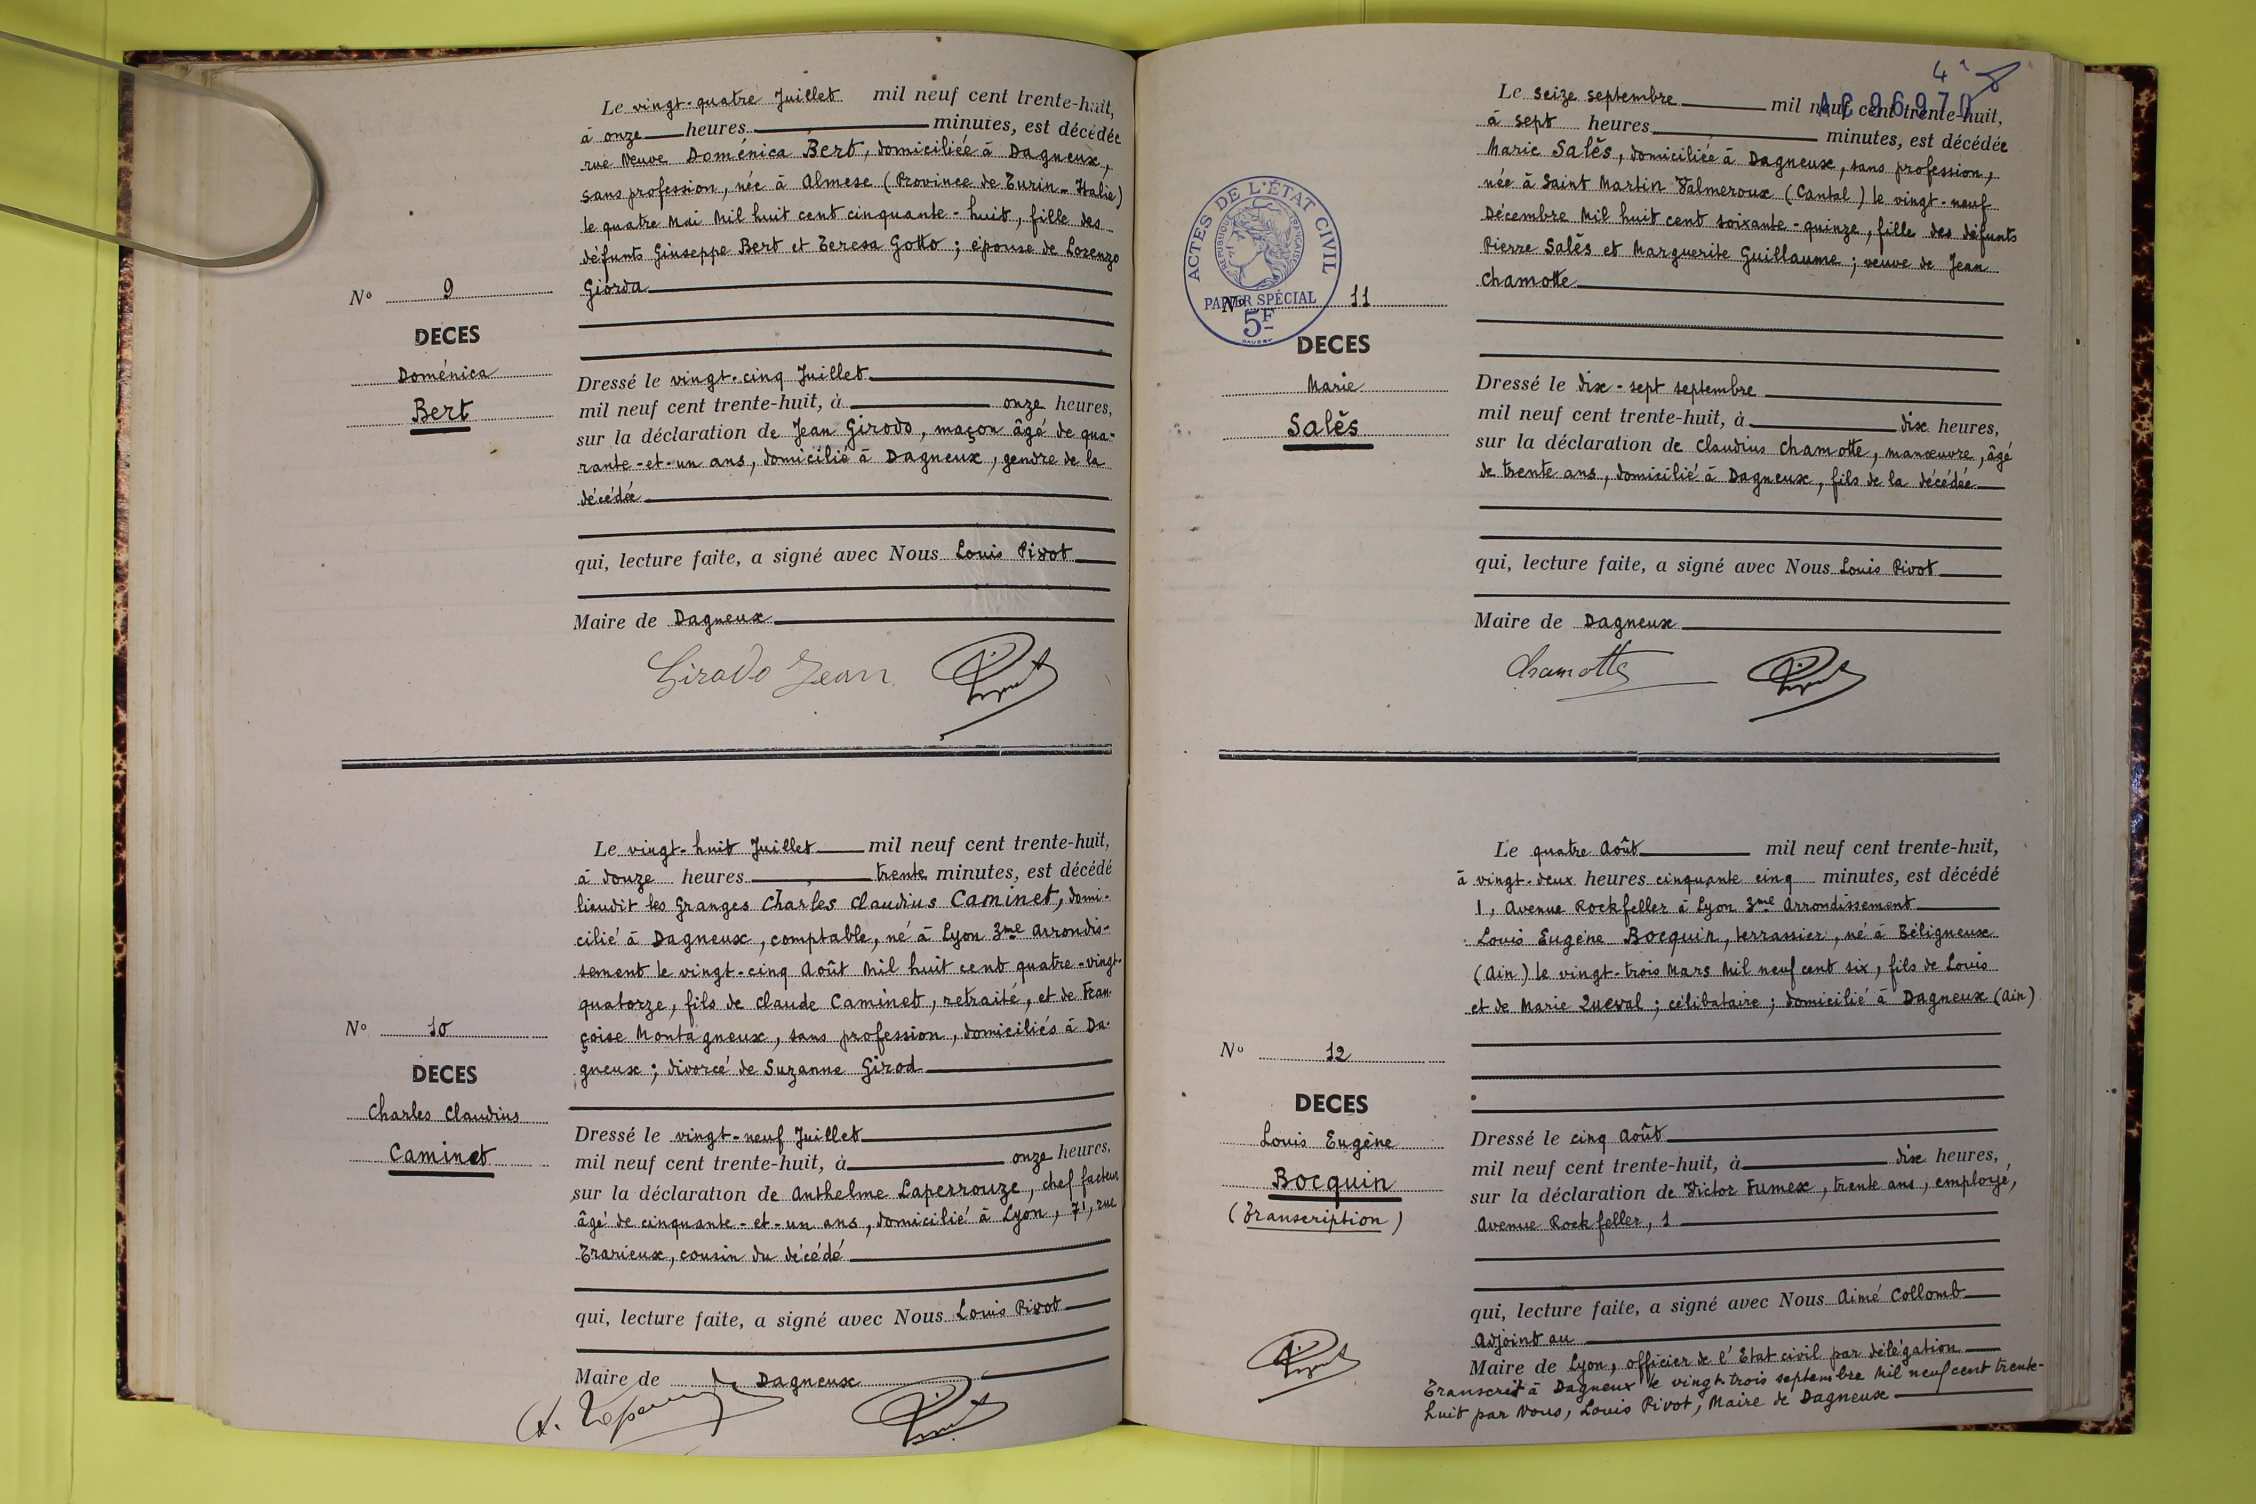 Le vingt-quatre Juillet mil neuf cent trente-huit,
à onze heures minutes, est décédée
rue Neuve Doménica Bert, domiciliée à Dagneux,
sans profession, née à Almese (Province de Turin - Italie)
le quatre Mai Mil huit cent cinquante-huit, fille des
défunts Giuseppe Bert et Teresa Gotto ; épouse de Lorenzo
Giorda
N° 9
DECES
Doménica
Bert
Dressé le vingt-cinq Juillet
mil neuf cent trente-huit, à onze heures,
sur la déclaration de Jean Girodo, maçon âgé de qua-
rante-et-un ans, domicilié à Dagneux, gendre de la
décédée
qui, lecture faite, a signé avec Nous Louis Pivot
Maire de Dagneux
Girodo Jean
Le vingt-huit Juillet mil neuf cent trente-huit,
à douze heures trente minutes, est décédé
lieudit les Granges Charles Claudius Caminet, domi-
cilié à Dagneux, comptable, né à Lyon 3me Arrondis-
sement le vingt-cinq Août Mil huit cent quatre-vingt-
quatorze, fils de Claude Caminet, retraité, et de Fran-
çoise Montagneux, sans profession, domiciliés à Da-
gneux ; divorcé de Suzanne Girod
N° 10
DECES
Charles Claudius
Caminet
Dressé le vingt-neuf Juillet
mil neuf cent trente-huit, à onze heures,
sur la déclaration de Anthelme Laperrouze, chef facteur
âgé de cinquante-et-un ans, domicilié à Lyon, 71, rue
Trarieux, cousin du décédé
qui, lecture faite, a signé avec Nous Louis Pivot
Maire de Dagneux
4
AC 96970
Le seize septembre mil neuf cent trente-huit,
à sept heures minutes, est décédée
Marie Salès, domiciliée à Dagneux, sans profession,
née à Saint Martin Valmeroux (Cantal) le vingt-neuf
Décembre Mil huit cent soixante-quinze, fille des défunts
Pierre Salès et Marguerite Guillaume ; veuve de Jean
Chamotte
ACTES DE L'ÉTAT CIVIL
RÉPUBLIQUE FRANÇAISE
PAPIER SPÉCIAL
5F
N° 11
DECES
Marie
Salès
Dressé le dix-sept septembre
mil neuf cent trente-huit, à dix heures,
sur la déclaration de Claudius Chamotte, manœuvre, âgé
de trente ans, domicilié à Dagneux, fils de la décédée
qui, lecture faite, a signé avec Nous Louis Pivot
Maire de Dagneux
Chamotte
Le quatre Août mil neuf cent trente-huit,
à vingt-deux heures cinquante cinq minutes, est décédé
1, Avenue Rockfeller à Lyon 3me Arrondissement
Louis Eugène Bocquin, terrassier, né à Béligneux
(Ain) le vingt-trois Mars Mil neuf cent six, fils de Louis
et de Marie Queval ; célibataire ; domicilié à Dagneux (Ain)
N° 12
DECES
Louis Eugène
Bocquin
(Transcription)
Dressé le cinq Août
mil neuf cent trente-huit, à dix heures,
sur la déclaration de Victor Fumex, trente ans, employé,
Avenue Rockfeller, 1
qui, lecture faite, a signé avec Nous Aimé Collomb
Adjoint au
Maire de Lyon, officier de l'Etat civil par délégation
Transcrit à Dagneux le vingt-trois septembre Mil neuf cent trente-
huit par Nous, Louis Pivot, Maire de Dagneux